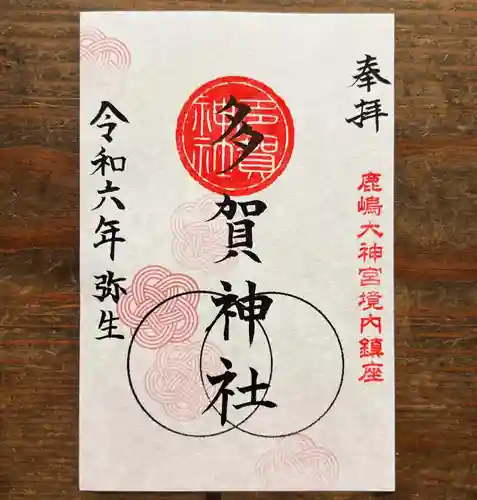 奉拝
鹿嶋大神宮境内鎮座
多賀神社
多賀神社
令和六年弥生